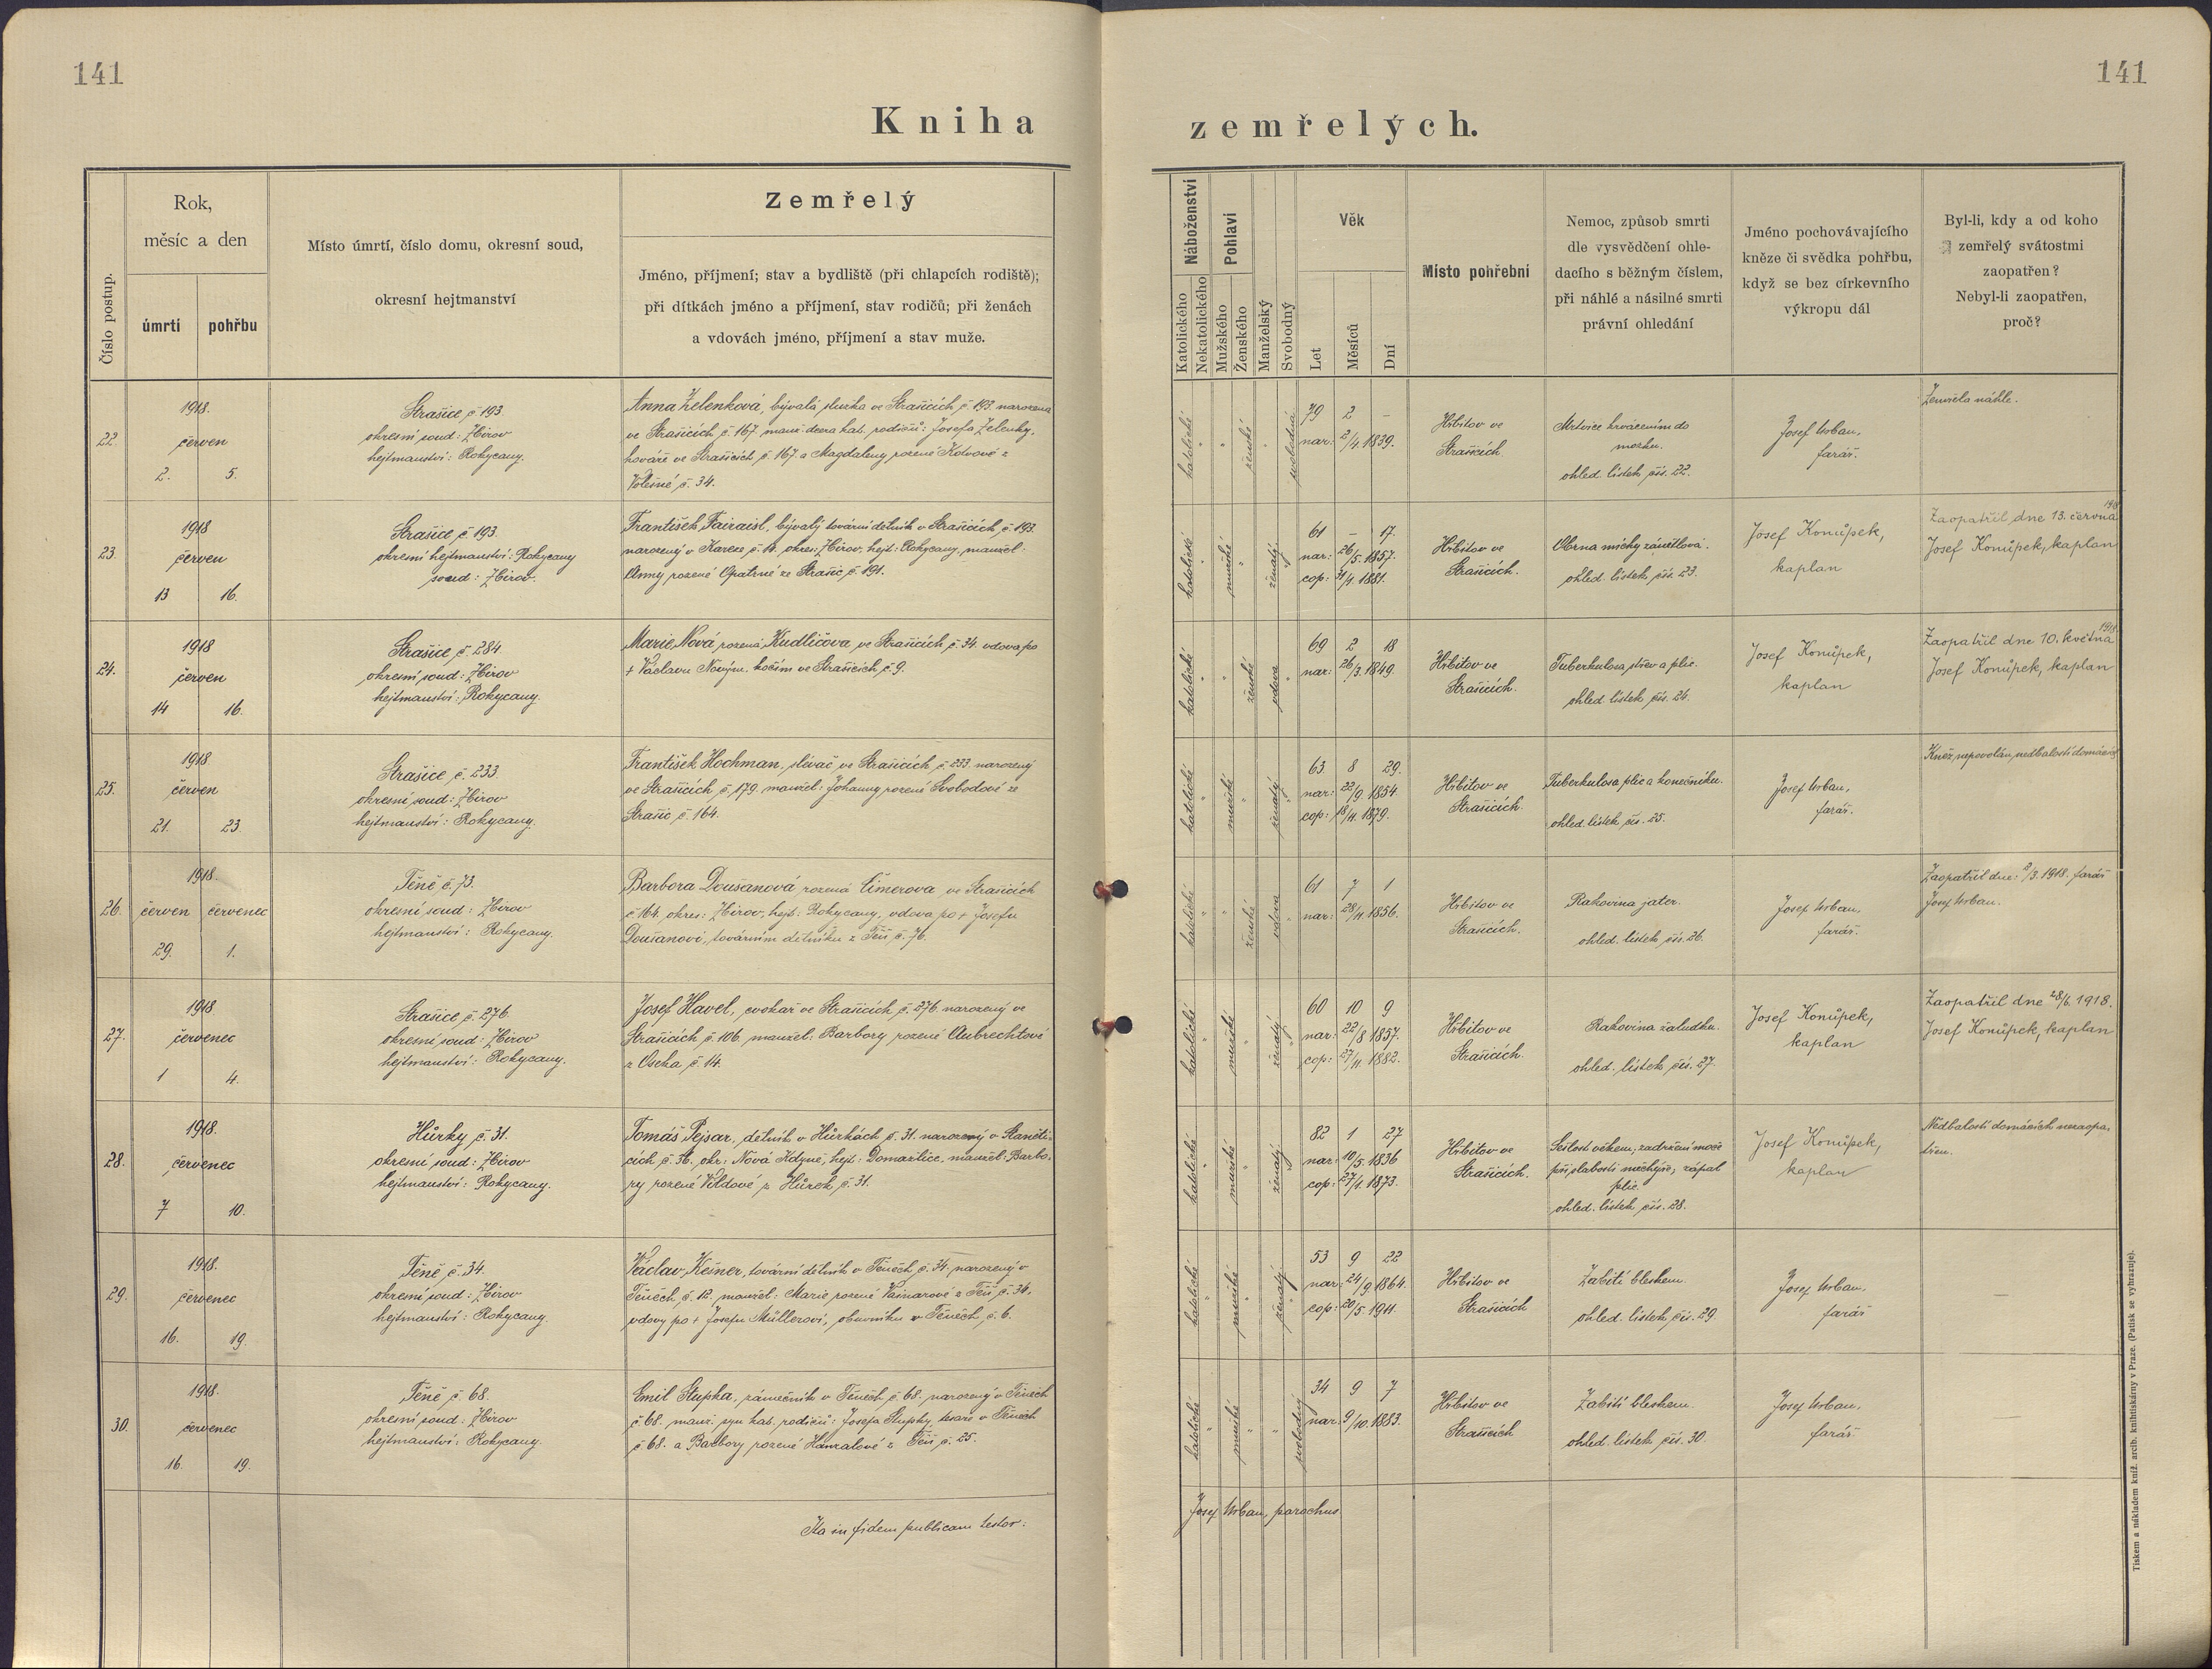 141
141
Kniha
zemřelých.
Číslo postup.
Rok,
měsíc a den
úmrtí
pohřbu
Místo úmrtí, číslo domu, okresní soud,
okresní hejtmanství
Zemřelý
Jméno, příjmení; stav a bydliště (při chlapcích rodiště);
při dítkách jméno a příjmení, stav rodičů; při ženách
a vdovách jméno, příjmení a stav muže.
Náboženství
Katolického
Nekatolického
Pohlaví
Mužského
Ženského
Manželský
Svobodný
Věk
Let
Měsíců
Dní
Místo pohřební
Nemoc, způsob smrti
dle vysvědčení ohle-
dacího s běžným číslem,
při náhlé a násilné smrti
právní ohledání
Jméno pochovávajícího
kněze či svědka pohřbu,
když se bez církevního
výkropu dál
Byl-li, kdy a od koho
zemřelý svátostmi
zaopatřen?
Nebyl-li zaopatřen,
proč?
22.
1918.
červen
2. 5.
Strašice č 193.
okresní soud: Zbirov
hejtmanství: Rokycany.
Anna Zelenková, bývalá služka ve Strašicích č. 193. narozena
ve Strašicích č. 167. manž. dcera kat. rodičů: Josefa Zelenky,
kováře ve Strašicích č. 167. a Magdaleny rozené Kotvové z
Volešné č. 34.
katolické
ženské
svobodná
79 2 –
nar: 2/4. 1839.
Hřbitov ve
Strašicích
Mrtvice krvácením do
mozku.
ohled. lístek čís. 22.
Josef Urban,
farář.
Zemřela náhle.
23.
1918
červen
13 16.
Strašice č 193.
okresní hejtmanství: Rokycany
soud: Zbirov.
František Fairaisl, bývalý tovární dělník v Strašicích č. 193.
narozený v Karece č. 11. okres: Zbirov, hejt: Rokycany, manžel:
Anny rozené Opatrné ze Strašic č. 191.
katolické
mužské
ženatý
61 – 17.
nar: 26/5. 1857.
cop: 31/1. 1881.
Hřbitov ve
Strašicích.
Obrna míchy zánětlová.
ohled. lístek čís. 23.
Josef Konůpek,
kaplan
Zaopatřil dne 13. června 1918
Josef Konůpek, kaplan
24.
1918
červen
14 16.
Strašice č. 284.
okresní soud: Zbirov
hejtmanství: Rokycany.
Marie Nová rozená Kudličova, ve Strašicích č. 34. vdova po
+ Václavu Novým. kočím ve Strašicích, č. 9.
katolické
ženské
vdova
69 2 18
nar: 26/3. 1849.
Hřbitov ve
Strašicích.
Tuberkulosa střev a plic.
ohled. lístek čís. 24.
Josef Konůpek,
kaplan
Zaopatřil dne 10. května 1918
Josef Konůpek, kaplan
25.
1918
červen
21. 23.
Strašice č. 233.
okresní soud: Zbirov
hejtmanství: Rokycany.
František Hochman, slévač ve Strašicích č. 233. narozený
ve Strašicích č. 179. manžel: Johanny rozené Svobodové ze
Strašic č. 164.
katolické
mužské
ženatý
63. 8 29.
nar: 22/9. 1854.
cop: 18/11. 1879.
Hřbitov ve
Strašicích.
Tuberkulosa plic a konečníku.
ohled. lístek čís. 25.
Josef Urban,
farář.
Kněz nepovolán nedbalostí domácích
26.
1918.
červen červenec
29. 1.
Těně č. 73.
okresní soud: Zbirov
hejtmanství: Rokycany.
Barbora Doušanová rozená Čimerova ve Strašicích
č. 164. okres: Zbirov, hejt: Rokycany, vdova po + Josefu
Doušanovi, továrním dělníku z Těň č. 76.
katolické
ženské
vdova
61 7 1
nar: 28/11. 1856.
Hřbitov ve
Strašicích.
Rakovina jater.
ohled. lístek čís. 26.
Josef Urban,
farář.
Zaopatřil dne: /3. 1918. farář
Josef Urban.
27.
1918
červenec
1 4.
Strašice č. 276.
okresní soud: Zbirov
hejtmanství: Rokycany.
Josef Havel, cvokař ve Strašicích č. 276. narozený ve
Strašicích č. 106. manžel: Barbory rozené Aubrechtové
z Oseka č. 14.
katolické
mužské
ženatý
60 10 9
nar: 22/8 1857.
cop: 27/11. 1882.
Hřbitov ve
Strašicích.
Rakovina žaludku.
ohled. lístek čís. 27.
Josef Konůpek,
kaplan
Zaopatřil dne 28/6. 1918.
Josef Konůpek, kaplan
28.
1918.
červenec
7 10.
Hůrky č. 31.
okresní soud: Zbirov
hejtmanství: Rokycany.
Tomáš Pejsar, dělník v Hůrkách č. 31. narozený v Staněti-
cích č. 36. okr: Nová Kdyně, hejt: Domažlice, manžel: Barbo-
ry rozené Vildové z Hůrek č. 31.
katolické
mužské
ženatý
82 1 27
nar: 10/5. 1836
cop: 27/1. 1873.
Hřbitov ve
Strašicích.
Sešlost věkem, zadržení moče
při slabosti měchýře, zápal
plic.
ohled. lístek čís. 28.
Josef Konůpek,
kaplan
Nedbalostí domácích nezaopa-
třen.
29.
1918.
červenec
16. 19.
Těně č. 34.
okresní soud: Zbirov
hejtmanství: Rokycany.
Václav Kesner, tovární dělník v Těnech, č. 34. narozený v
Těnech č. 12. manžel: Marie rozené Vainarové z Těň č. 34.
vdovy po + Josefu Müllerovi, obuvníku v Těnech č. 6.
katolické
mužské
ženatý
53 9 22
nar: 24/9. 1864.
cop: 20/5 1911.
Hřbitov ve
Strašicích
Zabití bleskem.
ohled. lístek čís. 29.
Josef Urban,
farář
—
30.
1918.
červenec
16. 19.
Těně č. 68.
okresní soud: Zbirov
hejtmanství: Rokycany.
Emil Stupka, zámečník v Těnech č. 68. narozený v Těnech
č. 68. manž. syn kat. rodičů: Josefa Stupky, tesaře v Těnech
č. 68. a Barbory rozené Hanzalové z Těň č. 25.
katolické
mužské
svobodný
34 9 7
nar: 9/10. 1883.
Hřbitov ve
Strašicích
Zabití bleskem.
ohled. lístek čís. 30.
Josef Urban,
farář.
—
Ita in fidem publicam testor:
Josef Urban, parochus
Tiskem a nákladem kníž. arcib. knihtiskárny v Praze. (Patisk se vyhrazuje).